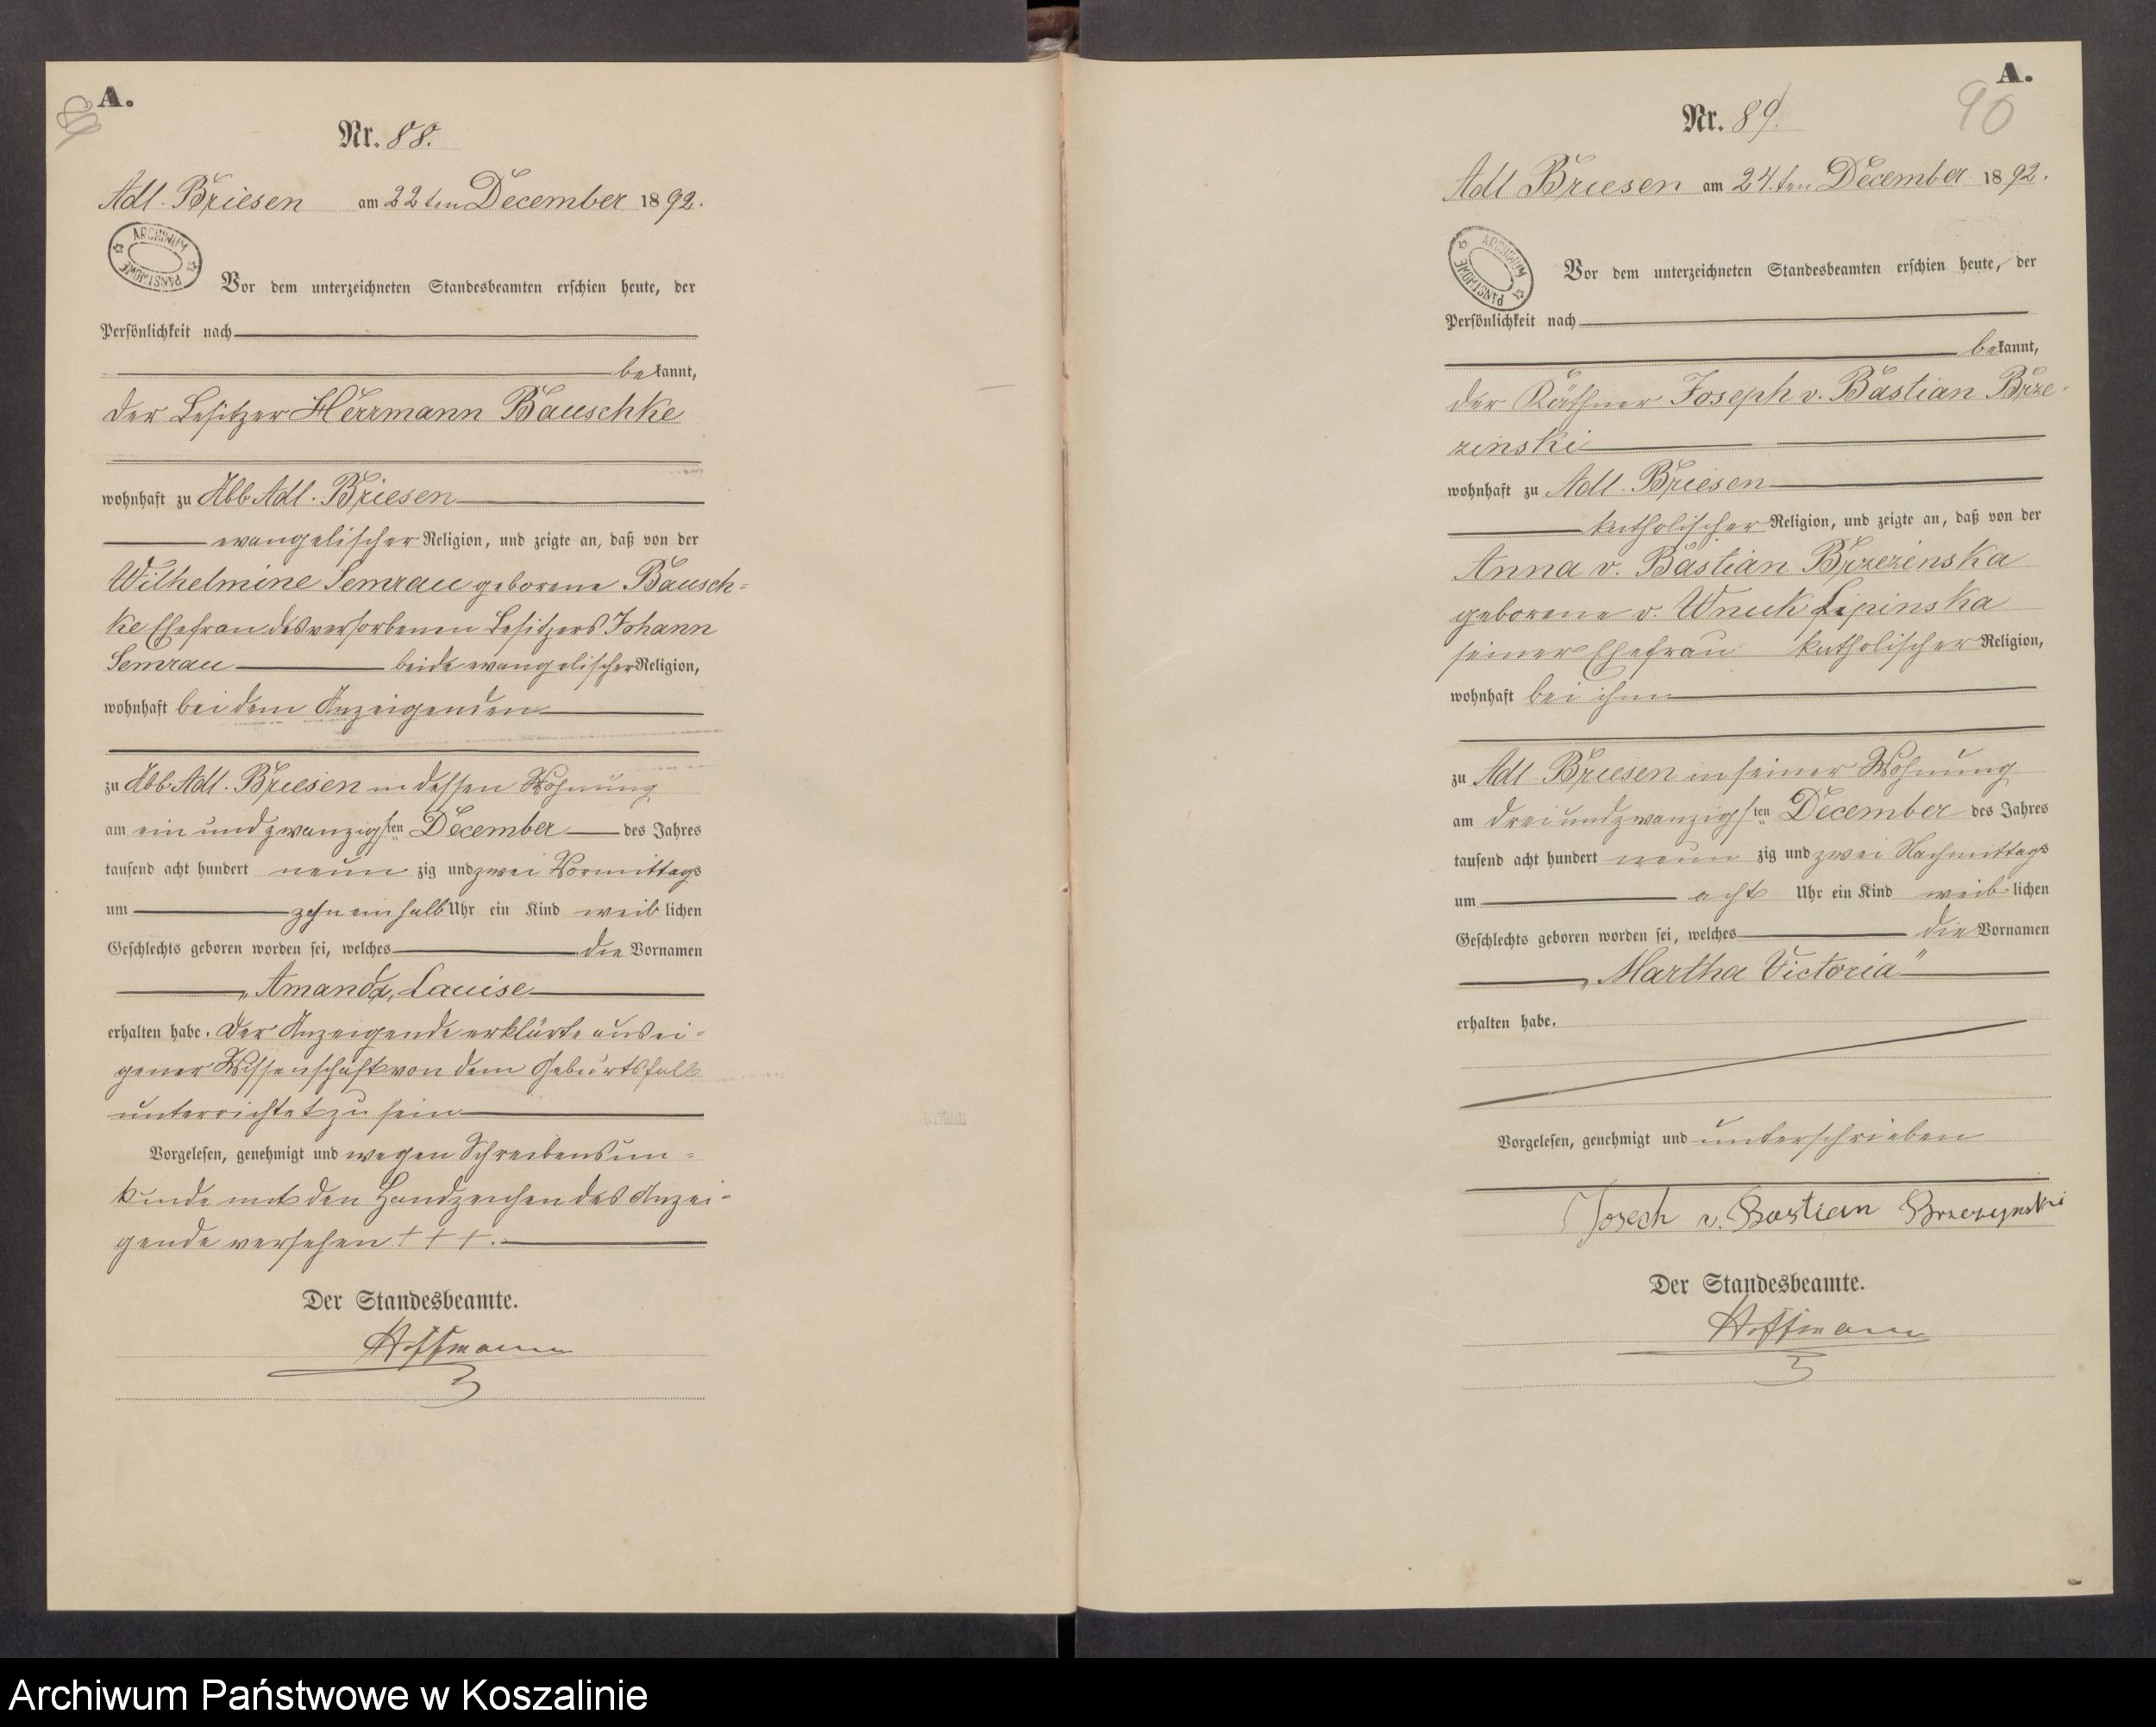 A.
89
Nr. 88.
Adl. Briesen am 22ten December 1892.
ARCHIWUM PAŃSTWOWE
Vor dem unterzeichneten Standesbeamten erschien heute, der
Persönlichkeit nach
bekannt,
der Besitzer Herrmann Bauschke
wohnhaft zu Abb Adl. Briesen
evangelischer Religion, und zeigte an, daß von der
Wilhelmine Semrau geborene Bausch-
ke Ehefrau des verstorbenen Besitzers Johann
Semrau beide evangelischer Religion,
wohnhaft bei dem Anzeigenden
zu Abb. Adl. Briesen in dessen Wohnung
am ein und zwanzigsten December des Jahres
tausend acht hundert neun zig und zwei Vormittags
um zehn einhalb Uhr ein Kind weiblichen
Geschlechts geboren worden sei, welches die Vornamen
„Amanda, Lauise
erhalten habe. Der Anzeigende erklärte aus ei-
gener Wissenschaft von dem Geburtsfall
unterrichtet zu sein
Vorgelesen, genehmigt und wegen Schreibensun-
kunde mit den Handzeichen des Anzei-
gende versehen + + +.
Der Standesbeamte.
Hoffmann
A.
90
Nr. 89.
Adl Briesen am 24.ten December 1892.
ARCHIWUM PAŃSTWOWE
Vor dem unterzeichneten Standesbeamten erschien heute, der
Persönlichkeit nach
bekannt,
der Käthner Joseph v. Bastian Brze-
zinski
wohnhaft zu Adl. Briesen
katholischer Religion, und zeigte an, daß von der
Anna v. Bastian Brzezinska
geborene v. Wnuk Lipinska
seiner Ehefrau katholischer Religion,
wohnhaft bei ihm
zu Adl Briesen in seiner Wohnung
am drei und zwanzigsten December des Jahres
tausend acht hundert neun zig und zwei Nachmittags
um acht Uhr ein Kind weiblichen
Geschlechts geboren worden sei, welches die Vornamen
„Martha Victoria"
erhalten habe.
Vorgelesen, genehmigt und unterschrieben
Josech v. Bastian Brzezynski
Der Standesbeamte.
Hoffmann
Archiwum Państwowe w Koszalinie